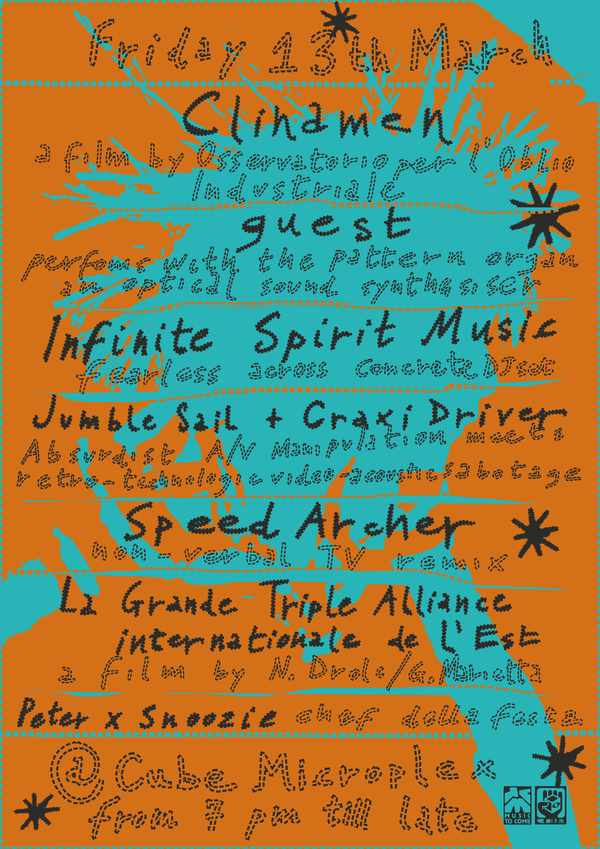 Friday 13th March
Clinamen
a film by Osservatorio per l'Oblio
Industriale
guest
perfoms with the pattern organ
an optical sound synthesiser
Infinite Spirit Music
fearless across Concrete DJset
Jumble Sail + Craxi Driver
Absurdist A/V Manipulation meets
retro-technologic video-acoustic sabotage
Speed Archer
non-verbal TV remix
La Grande Triple Alliance
internationale de l'Est
a film by N. Drolc/G. Marietta
Peter x Snoozie chef della festa
@ Cube Microplex
from 7 pm till late
MUSIC
TO COME